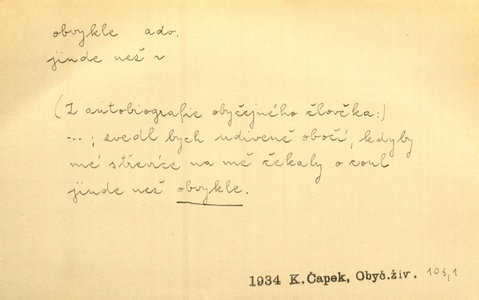 obvykle adv.
jinde než ~
(Z autobiografie obyčejného člověka:)
...; zvedl bych udiveně obočí, kdyby
mé střevíce na mě čekaly o coul
jinde než obvykle.
1934 K.Čapek, Obyč.živ. 103,1